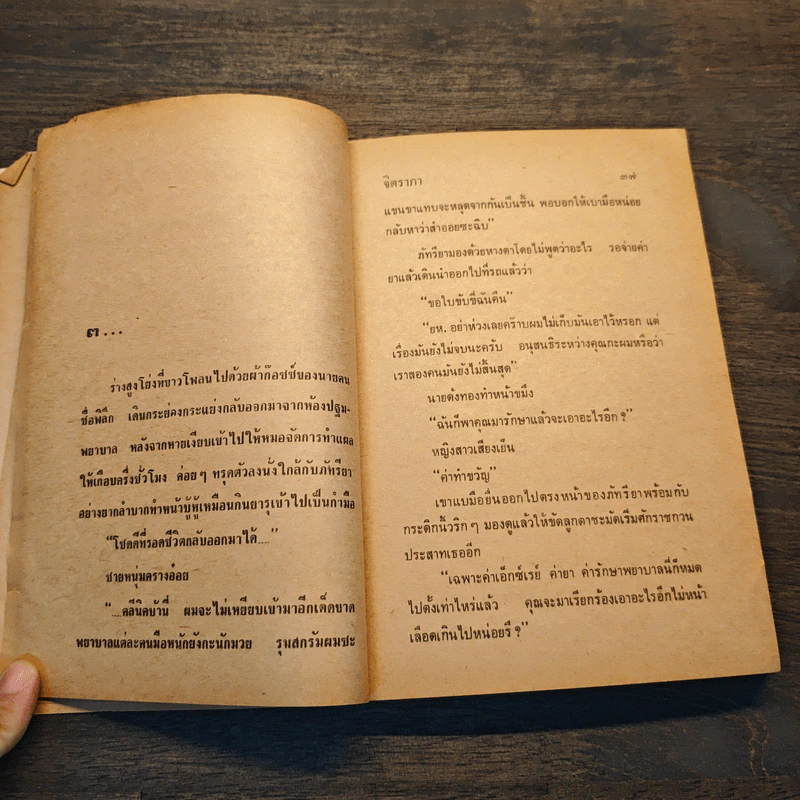 ๓...
ร่างสูงโย่งที่ขาวโพลนไปด้วยผ้าก๊อซซ์ของนายคน
ชื่อพิลึก เดินกระย่องกระแย่งกลับออกมาจากห้องปฐม-
พยาบาล หลังจากหายเงียบเข้าไปให้หมอจัดการทำแผล
ให้เกือบครึ่งชั่วโมง ค่อยๆ ทรุดตัวลงนั่งใกล้กับภัทรียา
อย่างยากลำบากทำหน้าบู้บี้เหมือนกินยารุเข้าไปเป็นกำมือ
“โชคดีที่รอดชีวิตกลับออกมาได้....”
ชายหนุ่มครางอ๋อย
“....คลีนิคบ้านี่ ผมจะไม่เหยียบเข้ามาอีกเด็ดขาด
พยาบาลแต่ละคนมือหนักยังกะนักมวย รุมสกรัมผมซะ
จิตราภา ๓๗
แขนขาแทบจะหลุดจากกันเป็นชิ้น พอบอกให้เบามือหน่อย
กลับหาว่าสำออยซะฉิบ”
ภัทรียามองด้วยหางตาโดยไม่พูดว่าอะไร รอจ่ายค่า
ยาแล้วเดินนำออกไปที่รถแล้วว่า
“ขอใบขับขี่ฉันคืน”
“ยห. อย่าห่วงเลยคร๊าบผมไม่เก็บมันเอาไว้หรอก แต่
เรื่องมันยังไม่จบนะครับ อนุสนธิระหว่างคุณกะผมหรือว่า
เราสองคนมันยังไม่สิ้นสุด”
นายดั้งทองทำหน้าขมึง
“ฉันก็พาคุณมารักษาแล้วจะเอาอะไรอีก?”
หญิงสาวเสียงเย็น
“ค่าทำขวัญ”
เขาแบมือยื่นออกไปตรงหน้าของภัทรียาพร้อมกับ
กระดิกนิ้วริกๆ มองดูแล้วให้ขัดลูกตาซะมัดเริ่มศักราชกวน
ประสาทเธออีก
“เฉพาะค่าเอ็กซ์เรย์ ค่ายา ค่ารักษาพยาบาลนี่ก็หมด
ไปตั้งเท่าไหร่แล้ว คุณจะมาเรียกร้องเอาอะไรอีกไม่หน้า
เลือดเกินไปหน่อยรึ?”